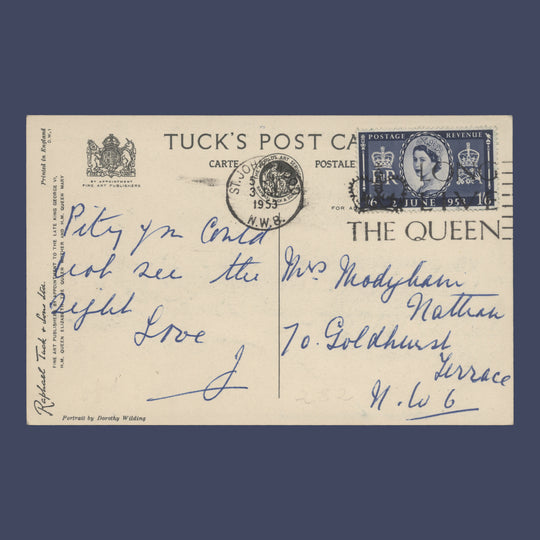 TUCK'S POST CA
CARTE POSTALE
BY APPOINTMENT
FINE ART PUBLISHERS
Printed in England
Raphael Tuck & Sons Ltd.
FINE ART PUBLISHERS BY APPOINTMENT TO THE LATE KING GEORGE VI,
H.M. QUEEN ELIZABETH THE QUEEN MOTHER AND H.M. QUEEN MARY
ST. JOHN'S
3
1953
N.W.8.
POSTAGE REVENUE
E R
2 JUNE 1953
1/6
THE QUEEN
FOR AD
Pity you could
not see the
light
Love
J
Mrs Modyham
Nathan
70. Goldhurst
Terrace
N.W 6
252
Portrait by Dorothy Wilding